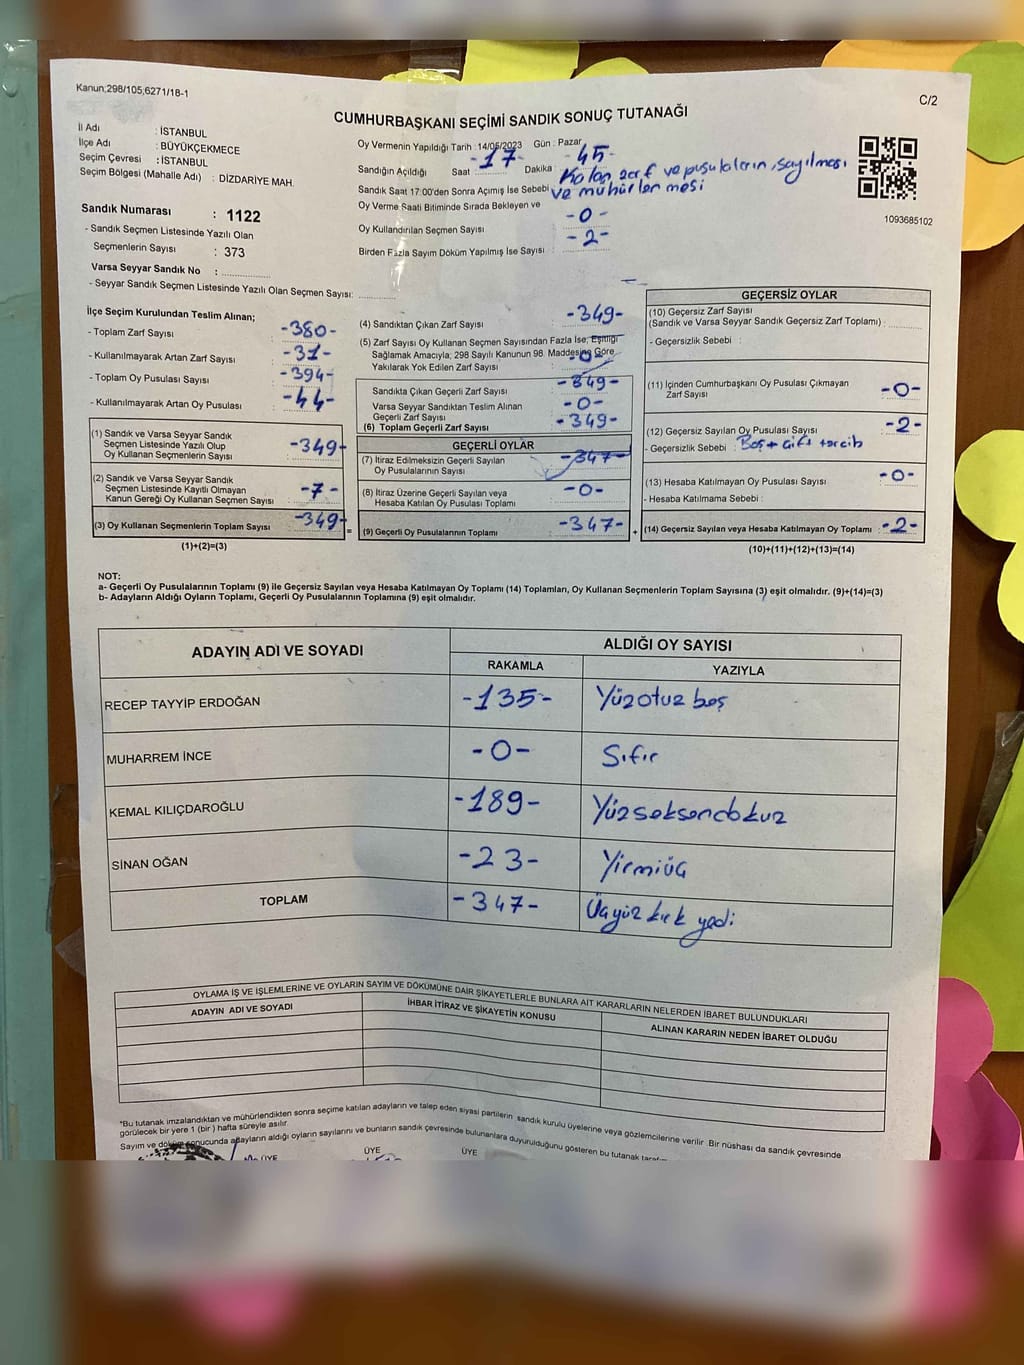 Kanun;298/105;6271/18-1
C/2
CUMHURBAŞKANI SEÇİMİ SANDIK SONUÇ TUTANAĞI
İl Adı : İSTANBUL
İlçe Adı : BÜYÜKÇEKMECE
Seçim Çevresi : İSTANBUL
Seçim Bölgesi (Mahalle Adı) : DİZDARİYE MAH.
Sandık Numarası : 1122
- Sandık Seçmen Listesinde Yazılı Olan
Seçmenlerin Sayısı : 373
Varsa Seyyar Sandık No :
- Seyyar Sandık Seçmen Listesinde Yazılı Olan Seçmen Sayısı:
Oy Vermenin Yapıldığı Tarih : 14/05/2023 Gün : Pazar
Sandığın Açıldığı Saat -17- Dakika : -45-
Sandık Saat 17:00'den Sonra Açımış İse Sebebi Kalan zarf ve pusulaların, sayılması
ve mühürlenmesi
Oy Verme Saati Bitiminde Sırada Bekleyen ve
Oy Kullandırılan Seçmen Sayısı -0-
Birden Fazla Sayım Döküm Yapılmış İse Sayısı : -2-
1093685102
İlçe Seçim Kurulundan Teslim Alınan;
- Toplam Zarf Sayısı -380-
- Kullanılmayarak Artan Zarf Sayısı -31-
- Toplam Oy Pusulası Sayısı -394-
- Kullanılmayarak Artan Oy Pusulası -44-
(1) Sandık ve Varsa Seyyar Sandık
Seçmen Listesinde Yazılı Olup
Oy Kullanan Seçmenlerin Sayısı -349-
(2) Sandık ve Varsa Seyyar Sandık
Seçmen Listesinde Kayıtlı Olmayan
Kanun Gereği Oy Kullanan Seçmen Sayısı -7-
(3) Oy Kullanan Seçmenlerin Toplam Sayısı -349-
(1)+(2)=(3)
(4) Sandıktan Çıkan Zarf Sayısı -349-
(5) Zarf Sayısı Oy Kullanan Seçmen Sayısından Fazla İse; Eşitliği
Sağlamak Amacıyla; 298 Sayılı Kanunun 98. Maddesine Göre
Yakılarak Yok Edilen Zarf Sayısı -0-
Sandıkta Çıkan Geçerli Zarf Sayısı -349-
Varsa Seyyar Sandıktan Teslim Alınan
Geçerli Zarf Sayısı -0-
(6) Toplam Geçerli Zarf Sayısı -349-
GEÇERLİ OYLAR
(7) İtiraz Edilmeksizin Geçerli Sayılan
Oy Pusulalarının Sayısı -347-
(8) İtiraz Üzerine Geçerli Sayılan veya
Hesaba Katılan Oy Pusulası Toplamı -0-
=
(9) Geçerli Oy Pusulalarının Toplamı -347-
+
GEÇERSİZ OYLAR
(10) Geçersiz Zarf Sayısı
(Sandık ve Varsa Seyyar Sandık Geçersiz Zarf Toplamı) :
- Geçersizlik Sebebi :
(11) İçinden Cumhurbaşkanı Oy Pusulası Çıkmayan
Zarf Sayısı -0-
(12) Geçersiz Sayılan Oy Pusulası Sayısı -2-
- Geçersizlik Sebebi : Boş + çift tercih
(13) Hesaba Katılmayan Oy Pusulası Sayısı -0-
- Hesaba Katılmama Sebebi :
(14) Geçersiz Sayılan veya Hesaba Katılmayan Oy Toplamı : -2-
(10)+(11)+(12)+(13)=(14)
NOT:
a- Geçerli Oy Pusulalarının Toplamı (9) ile Geçersiz Sayılan veya Hesaba Katılmayan Oy Toplamı (14) Toplamları, Oy Kullanan Seçmenlerin Toplam Sayısına (3) eşit olmalıdır. (9)+(14)=(3)
b- Adayların Aldığı Oyların Toplamı, Geçerli Oy Pusulalarının Toplamına (9) eşit olmalıdır.
ADAYIN ADI VE SOYADI
ALDIĞI OY SAYISI
RAKAMLA YAZIYLA
RECEP TAYYİP ERDOĞAN -135- Yüzotuz beş
MUHARREM İNCE -0- Sıfır
KEMAL KILIÇDAROĞLU -189- Yüzseksendokuz
SİNAN OĞAN -23- Yirmiüç
TOPLAM -347- Üçyüz kırk yedi
OYLAMA İŞ VE İŞLEMLERİNE VE OYLARIN SAYIM VE DÖKÜMÜNE DAİR ŞİKAYETLERLE BUNLARA AİT KARARLARIN NELERDEN İBARET BULUNDUKLARI
ADAYIN ADI VE SOYADI İHBAR İTİRAZ VE ŞİKAYETİN KONUSU ALINAN KARARIN NEDEN İBARET OLDUĞU
*Bu tutanak imzalandıktan ve mühürlendikten sonra seçime katılan adayların ve talep eden siyasi partilerin sandık kurulu üyelerine veya gözlemcilerine verilir. Bir nüshası da sandık çevresinde
görülecek bir yere 1 (bir) hafta süreyle asılır.
Sayım ve döküm sonucunda adayların aldığı oyların sayılarını ve bunların sandık çevresinde bulunanlara duyurulduğunu gösteren bu tutanak
ÜYE ÜYE ÜYE